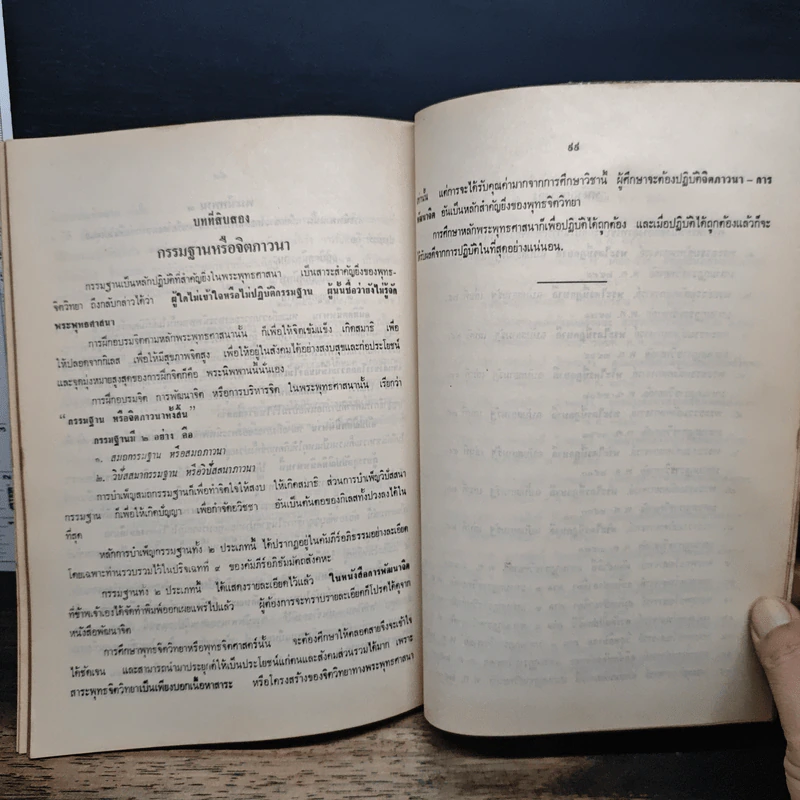 บทที่สิบสอง
กรรมฐานหรือจิตภาวนา
กรรมฐานเป็นหลักปฏิบัติที่สำคัญยิ่งในพระพุทธศาสนา เป็นสาระสำคัญยิ่งของพุทธ-
จิตวิทยา ถึงกับกล่าวได้ว่า ผู้ใดไม่เข้าใจหรือไม่ปฏิบัติกรรมฐาน ผู้นั้นชื่อว่ายังไม่รู้จัก
พระพุทธศาสนา
การฝึกอบรมจิตตามหลักพระพุทธศาสนานั้น ก็เพื่อให้จิตเข้มแข็ง เกิดสมาธิ เพื่อ
ให้ปลอดจากกิเลส เพื่อให้มีสุขภาพจิตสูง เพื่อให้อยู่ในสังคมได้อย่างสงบสุขและก่อประโยชน์
และจุดมุ่งหมายสูงสุดของการฝึกจิตก็คือ พระนิพพานนั่นเอง
การฝึกอบรมจิต การพัฒนาจิต หรือการบริหารจิต ในพระพุทธศาสนานั้น เรียกว่า
"กรรมฐาน หรือจิตภาวนาทั้งสิ้น"
กรรมฐานมี ๒ อย่าง คือ
๑. สมถกรรมฐาน หรือสมถภาวนา
๒. วิปัสสนากรรมฐาน หรือวิปัสสนาภาวนา
การบำเพ็ญสมถกรรมฐานก็เพื่อทำจิตใจให้สงบ ให้เกิดสมาธิ ส่วนการบำเพ็ญวิปัสสนา
กรรมฐาน ก็เพื่อให้เกิดปัญญา เพื่อกำจัดอวิชชา อันเป็นต้นตอของกิเลสทั้งปวงลงได้ใน
ที่สุด
หลักการบำเพ็ญกรรมฐานทั้ง ๒ ประเภทนี้ ได้ปรากฏอยู่ในคัมภีร์อภิธรรมอย่างละเอียด
โดยเฉพาะท่านรวบรวมไว้ในปริจเฉทที่ ๙ ของคัมภีร์อภิธัมมัตถสังคหะ
กรรมฐานทั้ง ๒ ประเภทนี้ ได้แสดงรายละเอียดไว้แล้ว ในหนังสือการพัฒนาจิต
ที่ข้าพเจ้าเองได้จัดทำพิมพ์ออกเผยแพร่ไปแล้ว ผู้ต้องการจะทราบรายละเอียดก็โปรดได้ดูจาก
หนังสือพัฒนาจิต
การศึกษาพุทธจิตวิทยาหรือพุทธจิตศาสตร์นั้น จะต้องศึกษาให้ตลอดสายจึงจะเข้าใจ
ได้ชัดเจน และสามารถนำมาประยุกต์ให้เป็นประโยชน์แก่ตนและสังคมส่วนรวมได้มาก เพราะ
สาระพุทธจิตวิทยาเป็นเพียงบอกเนื้อหาสาระ หรือโครงสร้างของจิตวิทยาทางพระพุทธศาสนา
๙๙
เท่านั้น แต่การจะได้รับคุณค่ามากจากการศึกษาวิชานี้ ผู้ศึกษาจะต้องปฏิบัติจิตภาวนา – การ
พัฒนาจิต อันเป็นหลักสำคัญยิ่งของพุทธจิตวิทยา
การศึกษาหลักพระพุทธศาสนาก็เพื่อปฏิบัติได้ถูกต้อง และเมื่อปฏิบัติได้ถูกต้องแล้วก็จะ
ได้รับผลดีจากการปฏิบัติในที่สุดอย่างแน่นอน.